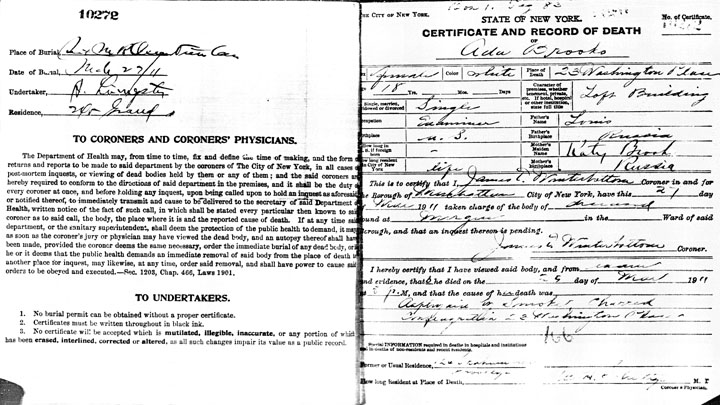 10272
Place of Burial,
Date of Burial, Mch 27/11
Undertaker,
Residence, Grand
TO CORONERS AND CORONERS' PHYSICIANS.
The Department of Health may, from time to time, fix and define the time of making, and the form of
returns and reports to be made to said department by the coroners of The City of New York, in all cases of
post-mortem inquests, or viewing of dead bodies held by them or any of them; and the said coroners are
hereby required to conform to the directions of said department in the premises, and it shall be the duty of
every coroner at once, and before holding any inquest, upon being called upon to hold an inquest as aforesaid,
or notified thereof, to immediately transmit and cause to be delivered to the secretary of said Department of
Health, written notice of the fact of such call, in which shall be stated every particular then known to said
coroner as to said call, the body, the place where it is and the reported cause of death. If at any time said
department, or the sanitary superintendent, shall deem the protection of the public health to demand it, may,
as soon as the coroner's jury or physician may have viewed the dead body, and an autopsy thereof shall have
been made, provided the coroner deems the same necessary, order the immediate burial of any dead body, or if
he or it deems that the public health demands an immediate removal of said body from the place of death to
another place for inquest, may likewise, at any time, order said removal, and shall have power to cause said
orders to be obeyed and executed.—Sec. 1203, Chap. 466, Laws 1901.
TO UNDERTAKERS.
1. No burial permit can be obtained without a proper certificate.
2. Certificates must be written throughout in black ink.
3. No certificate will be accepted which is mutilated, illegible, inaccurate, or any portion of which
has been erased, interlined, corrected or altered, as all such changes impair its value as a public record.
THE CITY OF NEW YORK.
STATE OF NEW YORK.
No. of Certificate,
CERTIFICATE AND RECORD OF DEATH
OF
Ada Brooks
Female Color White Place of Death 23 Washington Place
18 Yrs. Mos. Days
Character of premises, whether tenement, private, etc. If hotel, hospital or other institution, state full title Loft Building
Single, married, widowed or divorced Single
Occupation Examiner Father's Name Louis
Birthplace U.S. Father's Birthplace Russia
How long in U.S. if foreign born - Mother's Maiden Name Katy Brook
How long resident in City of New York life Mother's Birthplace Russia
This is to certify that I, James E. Winterbottom Coroner in and for
the Borough of Manhattan City of New York, have this 27 day
1911 taken charge of the body of deceased
found at Morgue in the Ward of said
Borough, and that an inquest thereon is pending.
James E Winterbottom Coroner.
I hereby certify that I have viewed said body, and from
and evidence, that he died on the day of 1911
at P.M, and that the cause of his death was
Asphyxia by smoke
Conflagration 23 Washington Place
Special INFORMATION required in deaths in hospitals and institutions
and in deaths of non-residents and recent residents.
Former or Usual Residence,
How long Resident at Place of Death, M. D
Coroner's Physician.